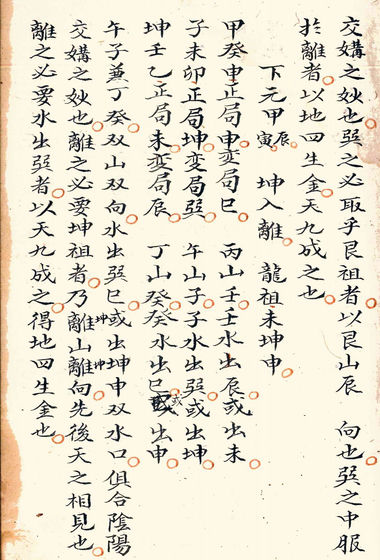 交媾之妙也巽之必取乎艮祖者以艮山辰 向也巽之中服
於離者以地四生金天九成之也
下元甲寅辰 坤入離 龍祖未坤申
甲癸申正局申变局巳 丙山壬壬水出辰或出未
子未卯正局坤变局巽 午山子子水出巽或出坤
坤壬乙正局未变局辰 丁山癸癸水出巳或出申
午子兼丁癸双山双向水出巽巳或出坤申双水口俱合陰陽
交媾之妙也離之必要坤祖者乃離山離向先後天之相見也
離之必要水出巽者以天九成之得地四生金也